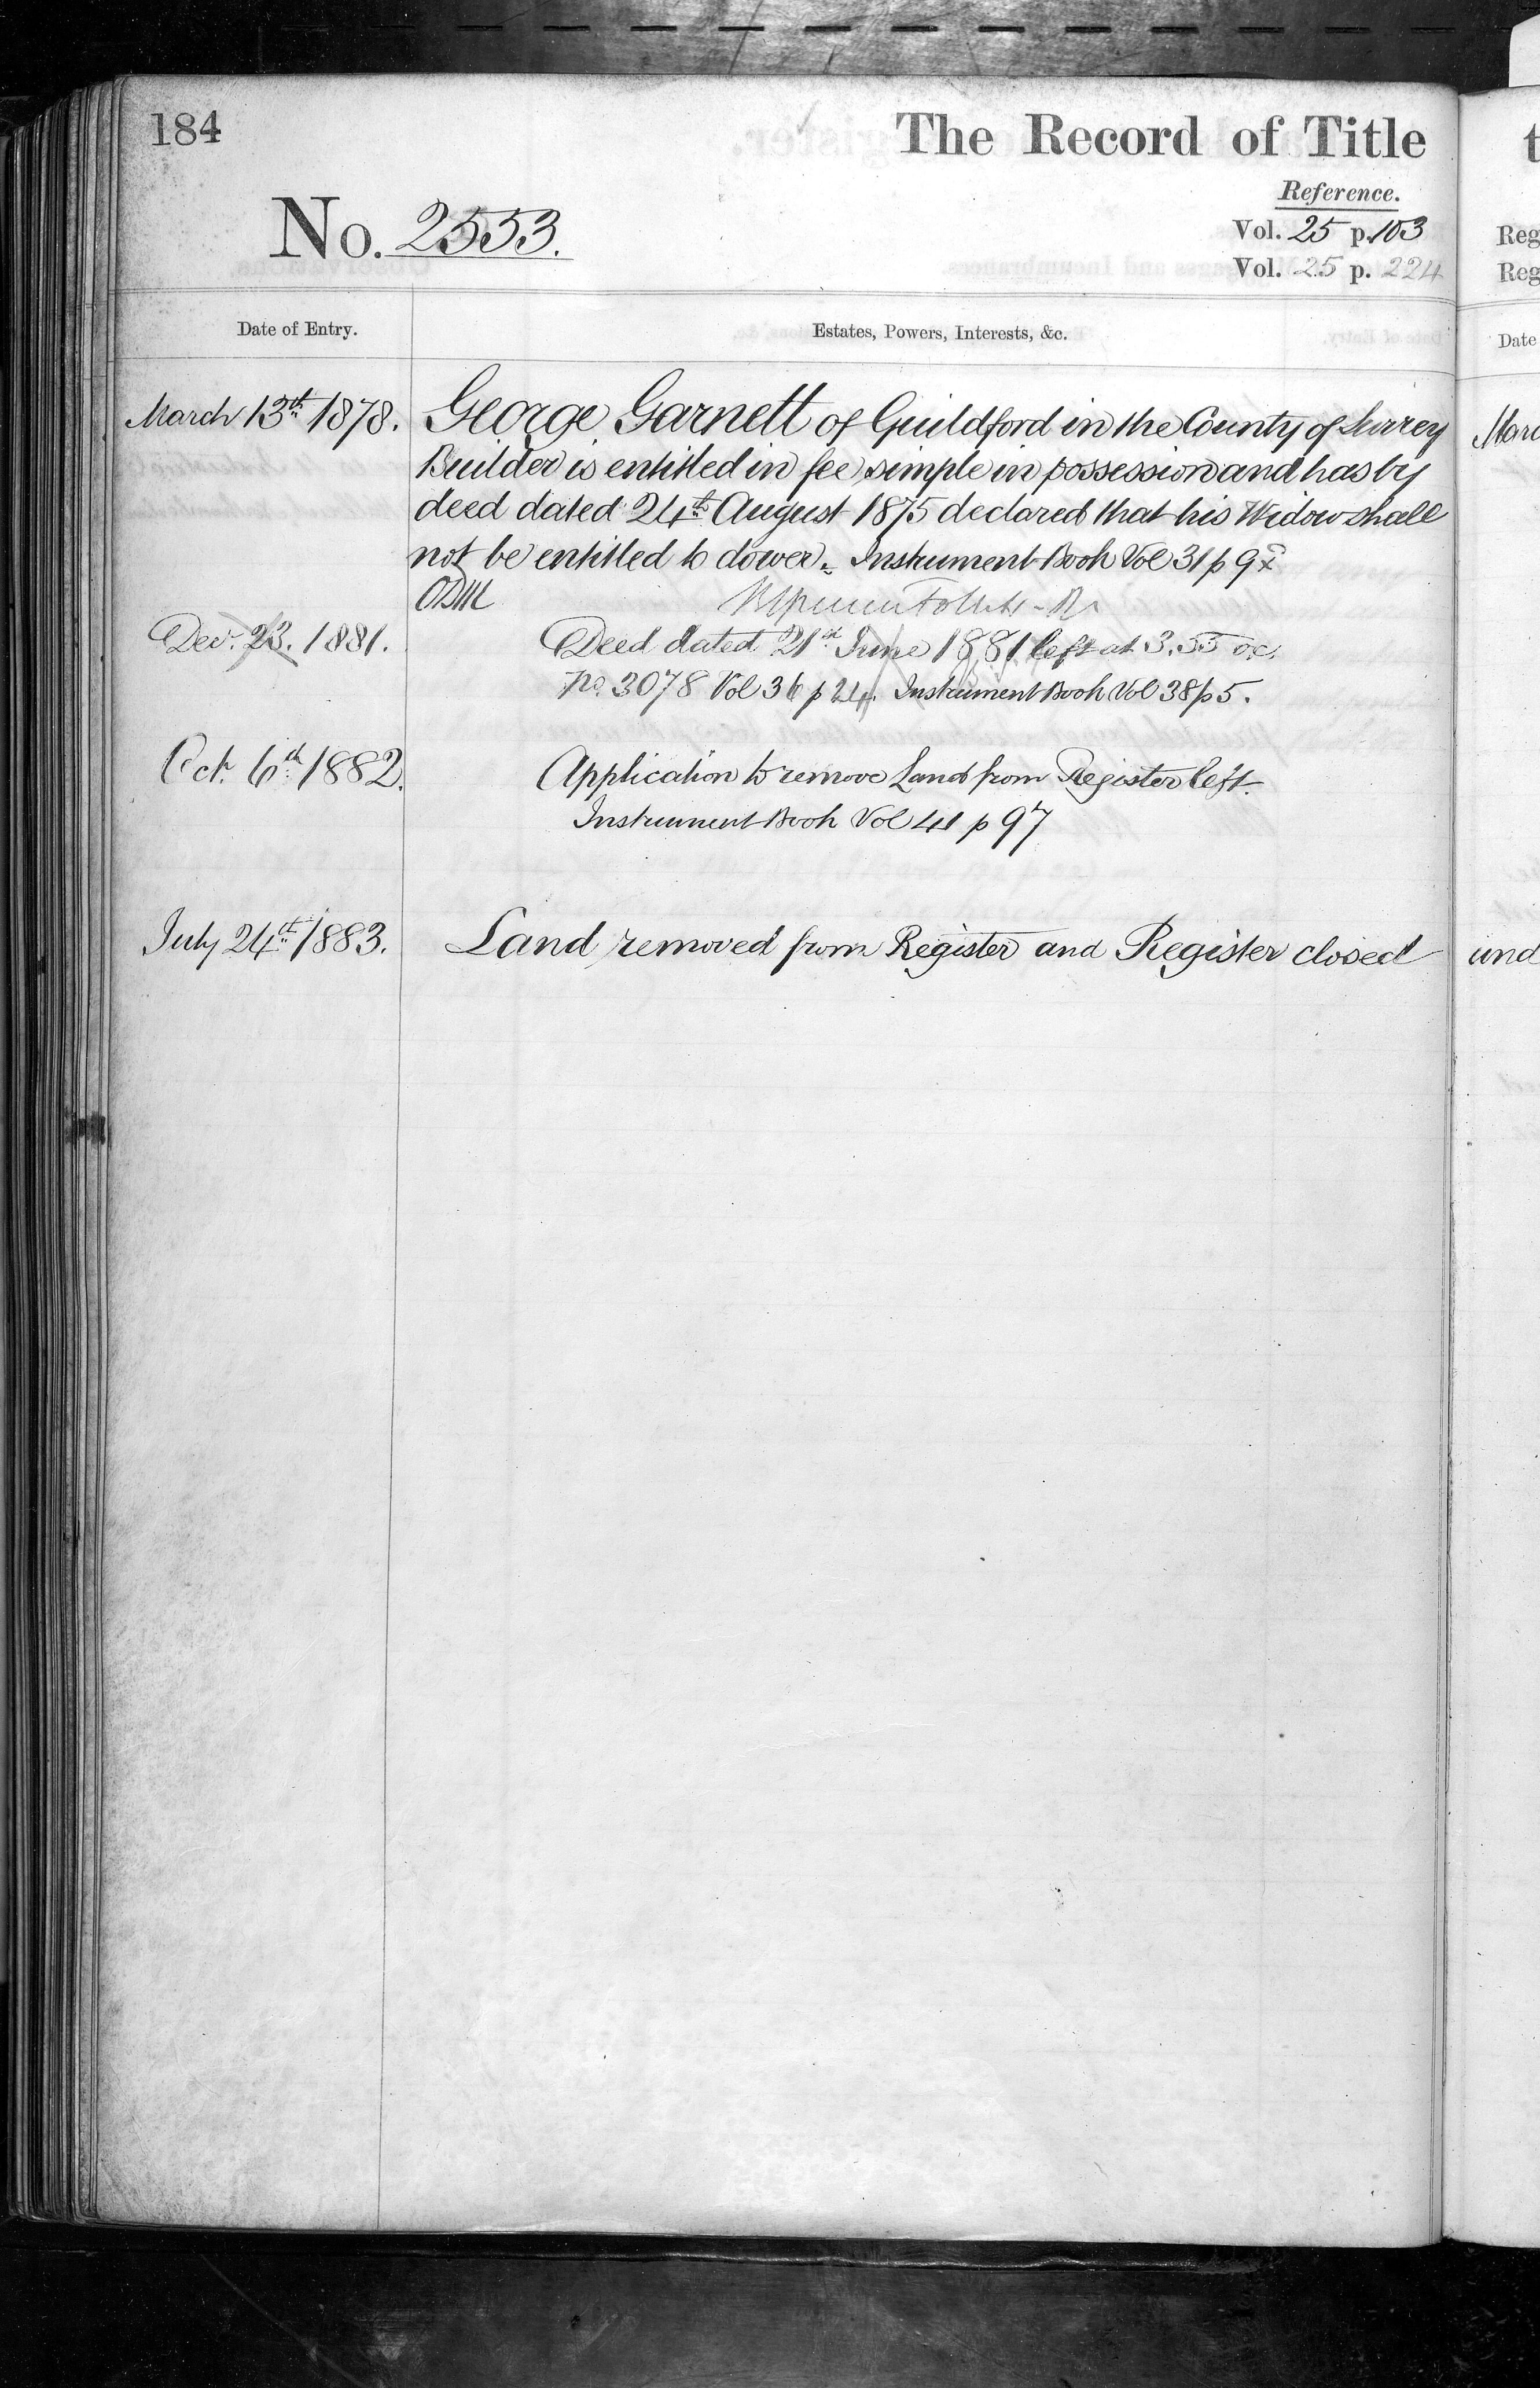 184
The Record of Title
No. 2553.
Reference.
Vol. 25 p. 103
Vol. 25 p. 224
Date of Entry.
Estates, Powers, Interests, &c.
March 13th 1878.
George Garnett of Guildford in the County of Surrey
Builder is entitled in fee simple in possession and has by
deed dated 24th August 1875 declared that his Widow shall
not be entitled to dower. Instrument Book Vol 31 p 9
Dec. 23. 1881.
Deed dated 21st June 1881 left at 3.55 oc.
No. 3078 Vol 36 p 24. Instrument Book Vol 38 p 5.
Oct. 6th 1882.
Application to remove Land from Register left.
Instrument Book Vol 41 p 97
July 24th 1883.
Land removed from Register and Register closed
t
Reg
Reg
Date
Marc
and